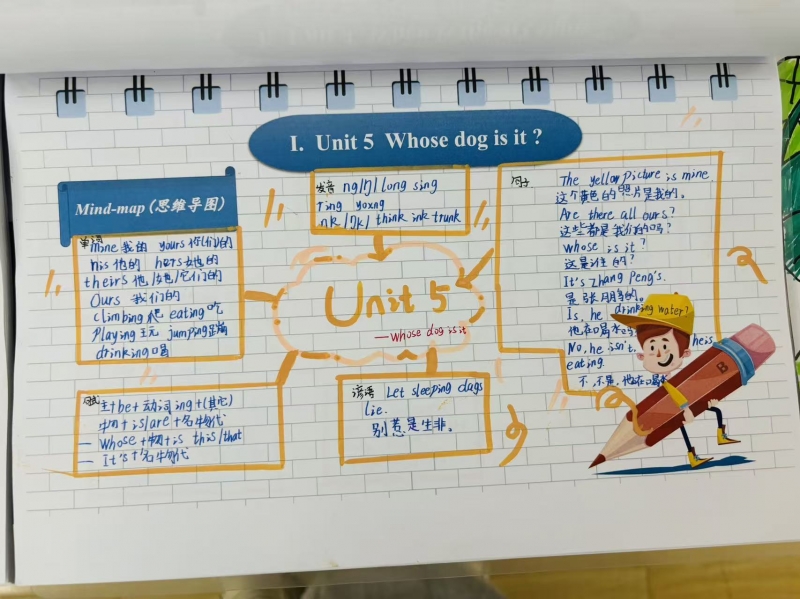 I. Unit 5 Whose dog is it ?
Mind-map (思维导图)
单词
mine 我的 yours 你(们)的
his 他的 hers 她的
theirs 他/她/它们的
Ours 我们的
climbing 爬 eating 吃
Playing 玩 jumping 跳
drinking 喝
发音 ng/ŋ/ long sing
ring yoxng
nk/ŋk/ think ink trunk
句子
The yellow picture is mine.
这个黄色的照片是我的。
Are there all ours?
这些都是我们的吗?
whose is it?
这是谁的?
It's Zhang Peng's.
是张朋的。
Is, he drinking water?
他在喝水吗
No, he isn't. he is
eating.
不,不是,他在
Unit 5
—whose dog is it
主+be+动词ing+(其它)
物+is/are+名物代
— Whose+物+is this/that
— It's+名物代
谚语 Let sleeping dags
lie.
别惹是生非。
B